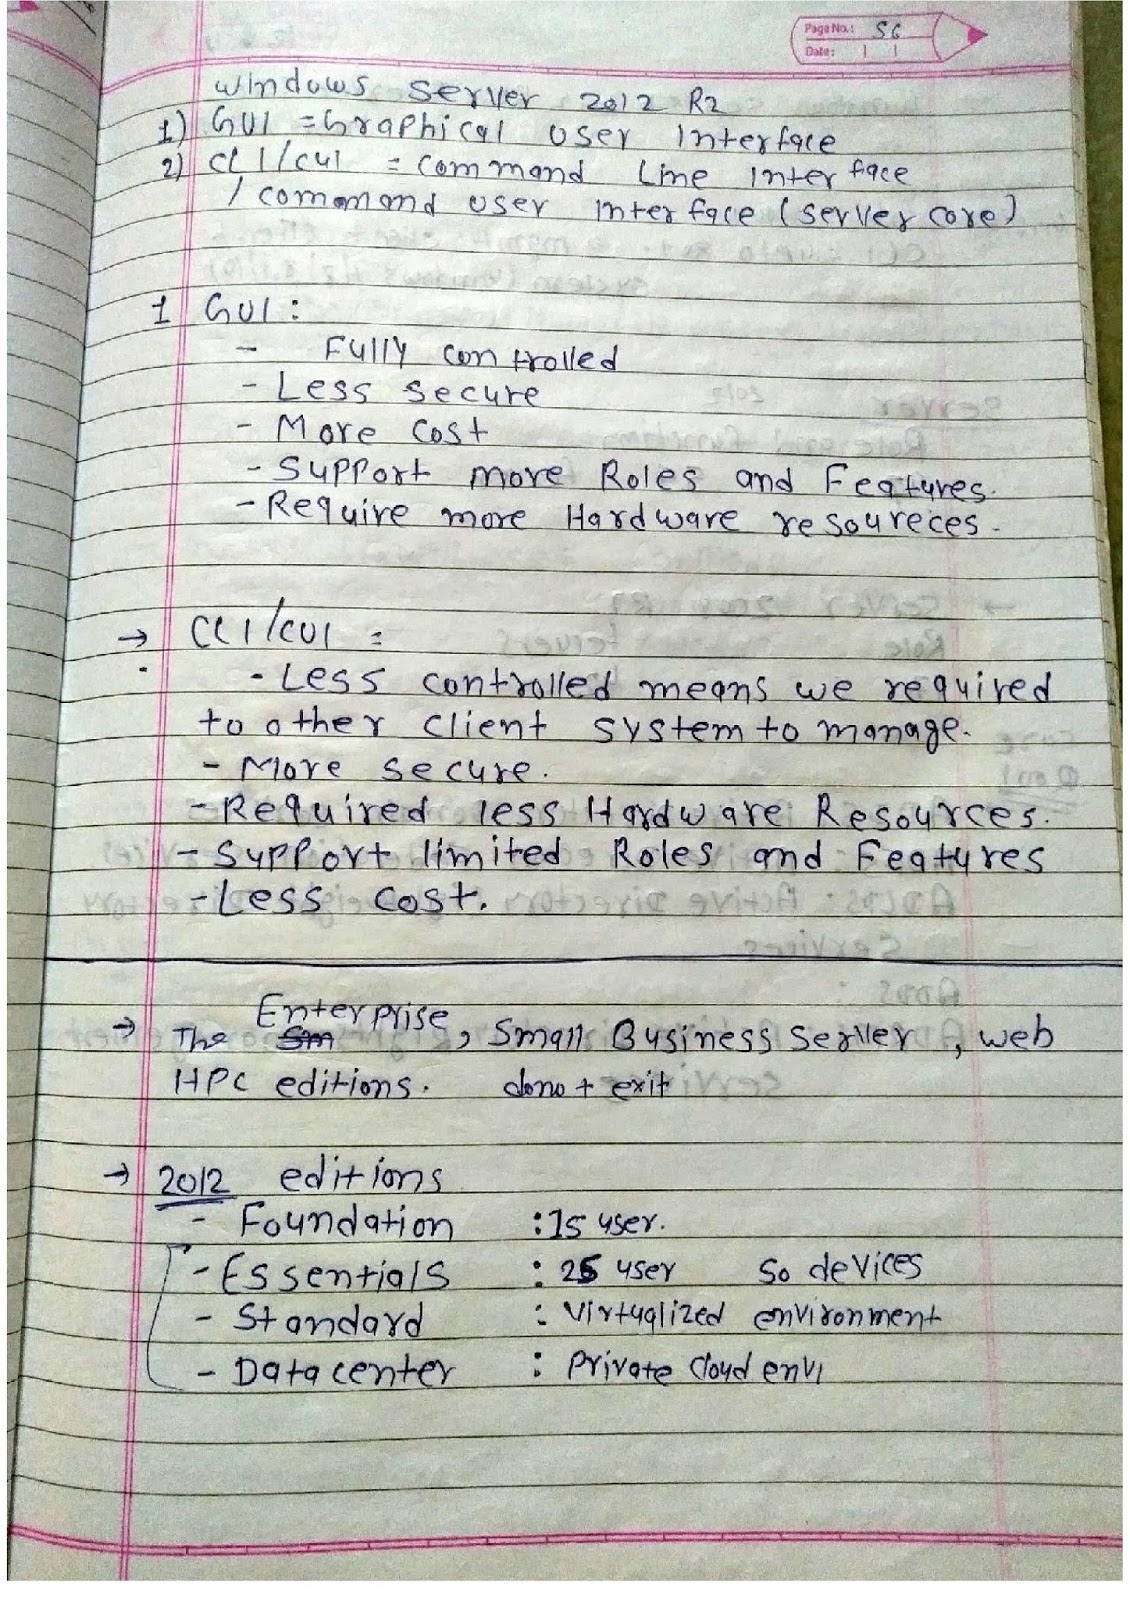 Page No.: 56
Date: | |
Windows Server 2012 R2
1) GUI = Graphical User Interface
2) CLI/CUI = Command Line Interface
/ Command User Interface (Server core)
1 GUI :
- Fully controlled
- Less secure
- More cost
- Support more Roles and Features.
- Require more Hardware resoureces.
→ CLI/CUI =
- Less controlled means we required
to other client system to manage.
- More secure.
- Required less Hardware Resources.
- Support limited Roles and Features
- Less cost.
→ The Enterprise, Small Business Server, web
HPC editions. donot exit
→ 2012 editions
- Foundation : 15 user.
- Essentials : 25 user 50 devices
- Standard : Virtualized environment
- Datacenter : Private cloud envi